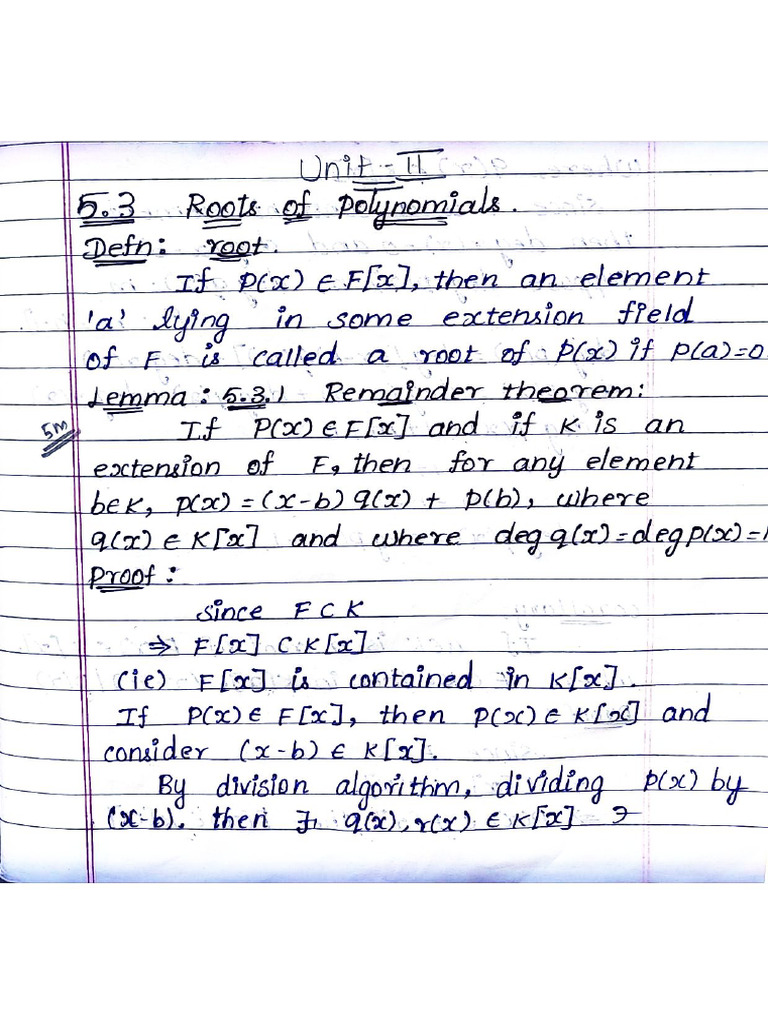 Unit - II
5.3 Roots of Polynomials.
Defn: root.
If P(x) ∈ F[x], then an element
'a' lying in some extension field
of F is called a root of P(x) if P(a)=0
Lemma : 5.3.1 Remainder theorem:
5m If P(x) ∈ F[x] and if K is an
extension of F, then for any element
b∈K, p(x) = (x-b) q(x) + P(b), where
q(x) ∈ K[x] and where deg q(x) = deg p(x) =1
Proof :
since F ⊂ K
⇒ F[x] ⊂ K[x]
(ie) F[x] is contained in K[x].
If P(x) ∈ F[x], then P(x) ∈ K[x] and
consider (x-b) ∈ K[x].
By division algorithm, dividing p(x) by
(x-b). then ∃ q(x), r(x) ∈ K[x] ∋